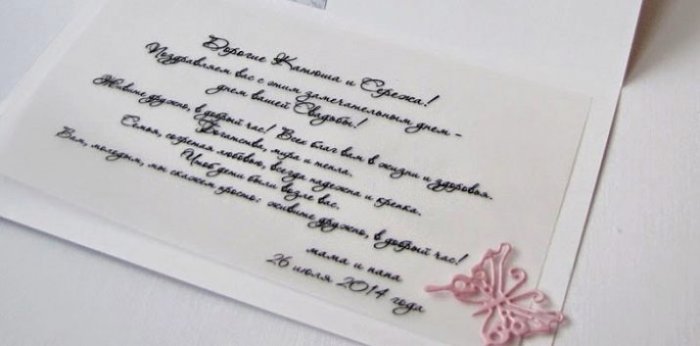 Дорогие Катюша и Серёжа!
Поздравляем вас с этим замечательным днем -
днем вашей Свадьбы!
Живите дружно, в добрый час! Всех благ вам в жизни и здоровья.
Богатства, мира и тепла.
Семья, согретая любовью, всегда надежна и крепка.
Чтоб дети были возле вас.
Вам, молодым, мы скажем просто: живите дружно, в добрый час!
мама и папа
26 июля 2014 года